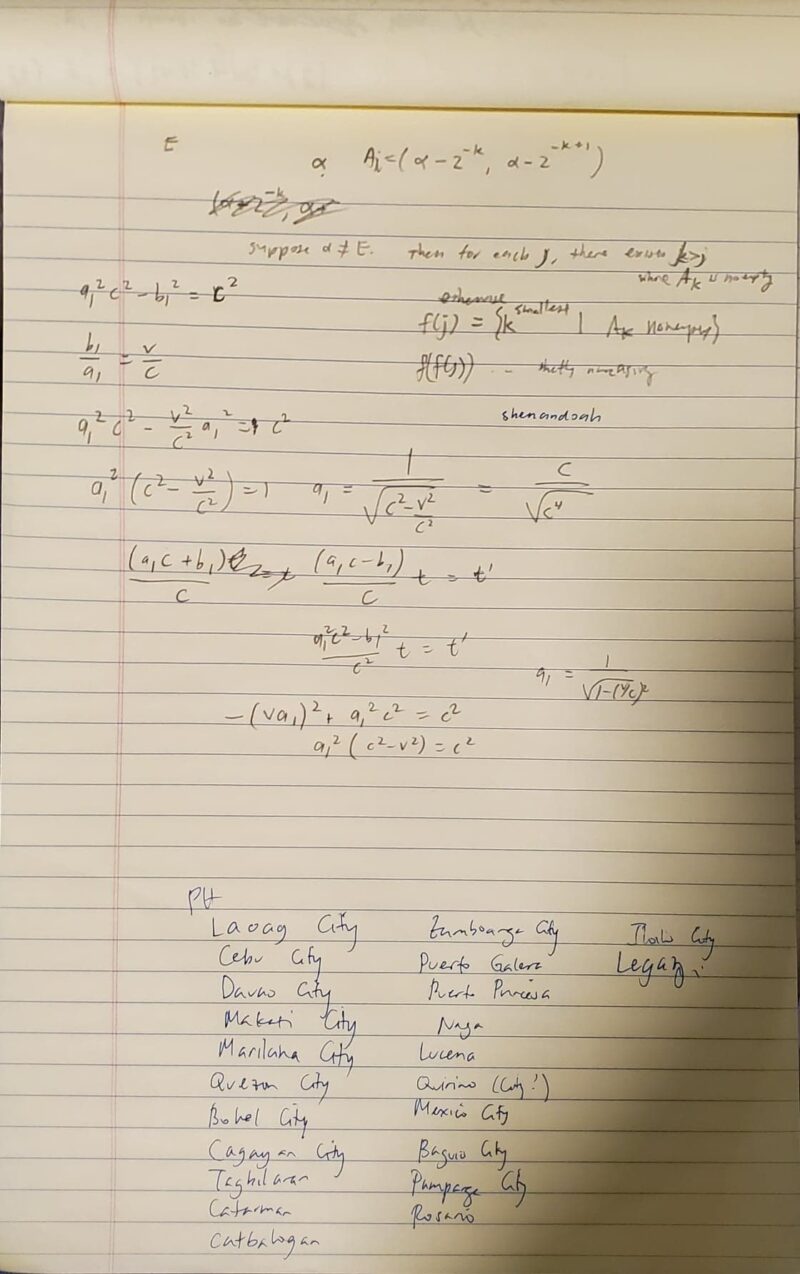 E
α   A_i = (α - 2^{-k}, α - 2^{-k+1})
suppose α ∉ E. Then for each j, there exists k>j
where A_k is nonempty
a_1^2 c^2 - b_1^2 = c^2
otherwise
f(j) = {k smallest | A_k nonempty}
b_1/a_1 = v/c
f(f(j)) ... strictly increasing
shenandoah
a_1^2 c^2 - v^2/c^2 a_1^2 = c^2
a_1^2 (c^2 - v^2/c^2) = 1   a_1 = 1/√(c^2 - v^2/c^2) = c/√(c^4
(a_1c + b_1)/c   (a_1c - b_1)/c t = t'
(a_1^2c^2 - b_1^2)/c^2 t = t'
a_1 = 1/√(1-(v/c)^2
-(va_1)^2 + a_1^2 c^2 = c^2
a_1^2 (c^2 - v^2) = c^2
PH
Laoag City
Cebu City
Davao City
Makati City
Marilaha City
Quezon City
Bohel City
Cagayan City
Tagbilaran
Catarman
Catbalogan
Zamboanga City
Puerto Galera
Puerto Princesa
Naga
Lucena
Quirino (City?)
Mexico City
Baguio City
Pampanga City
Rosario
Iloilo City
Legazpi